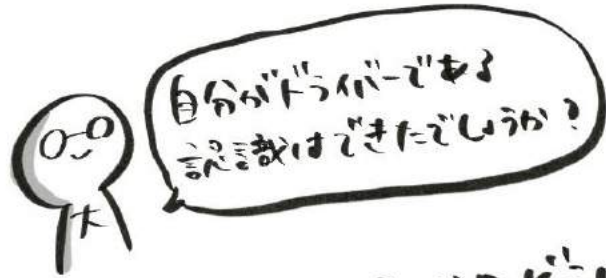 自分がドライバーである
認識はできたでしょうか？
大